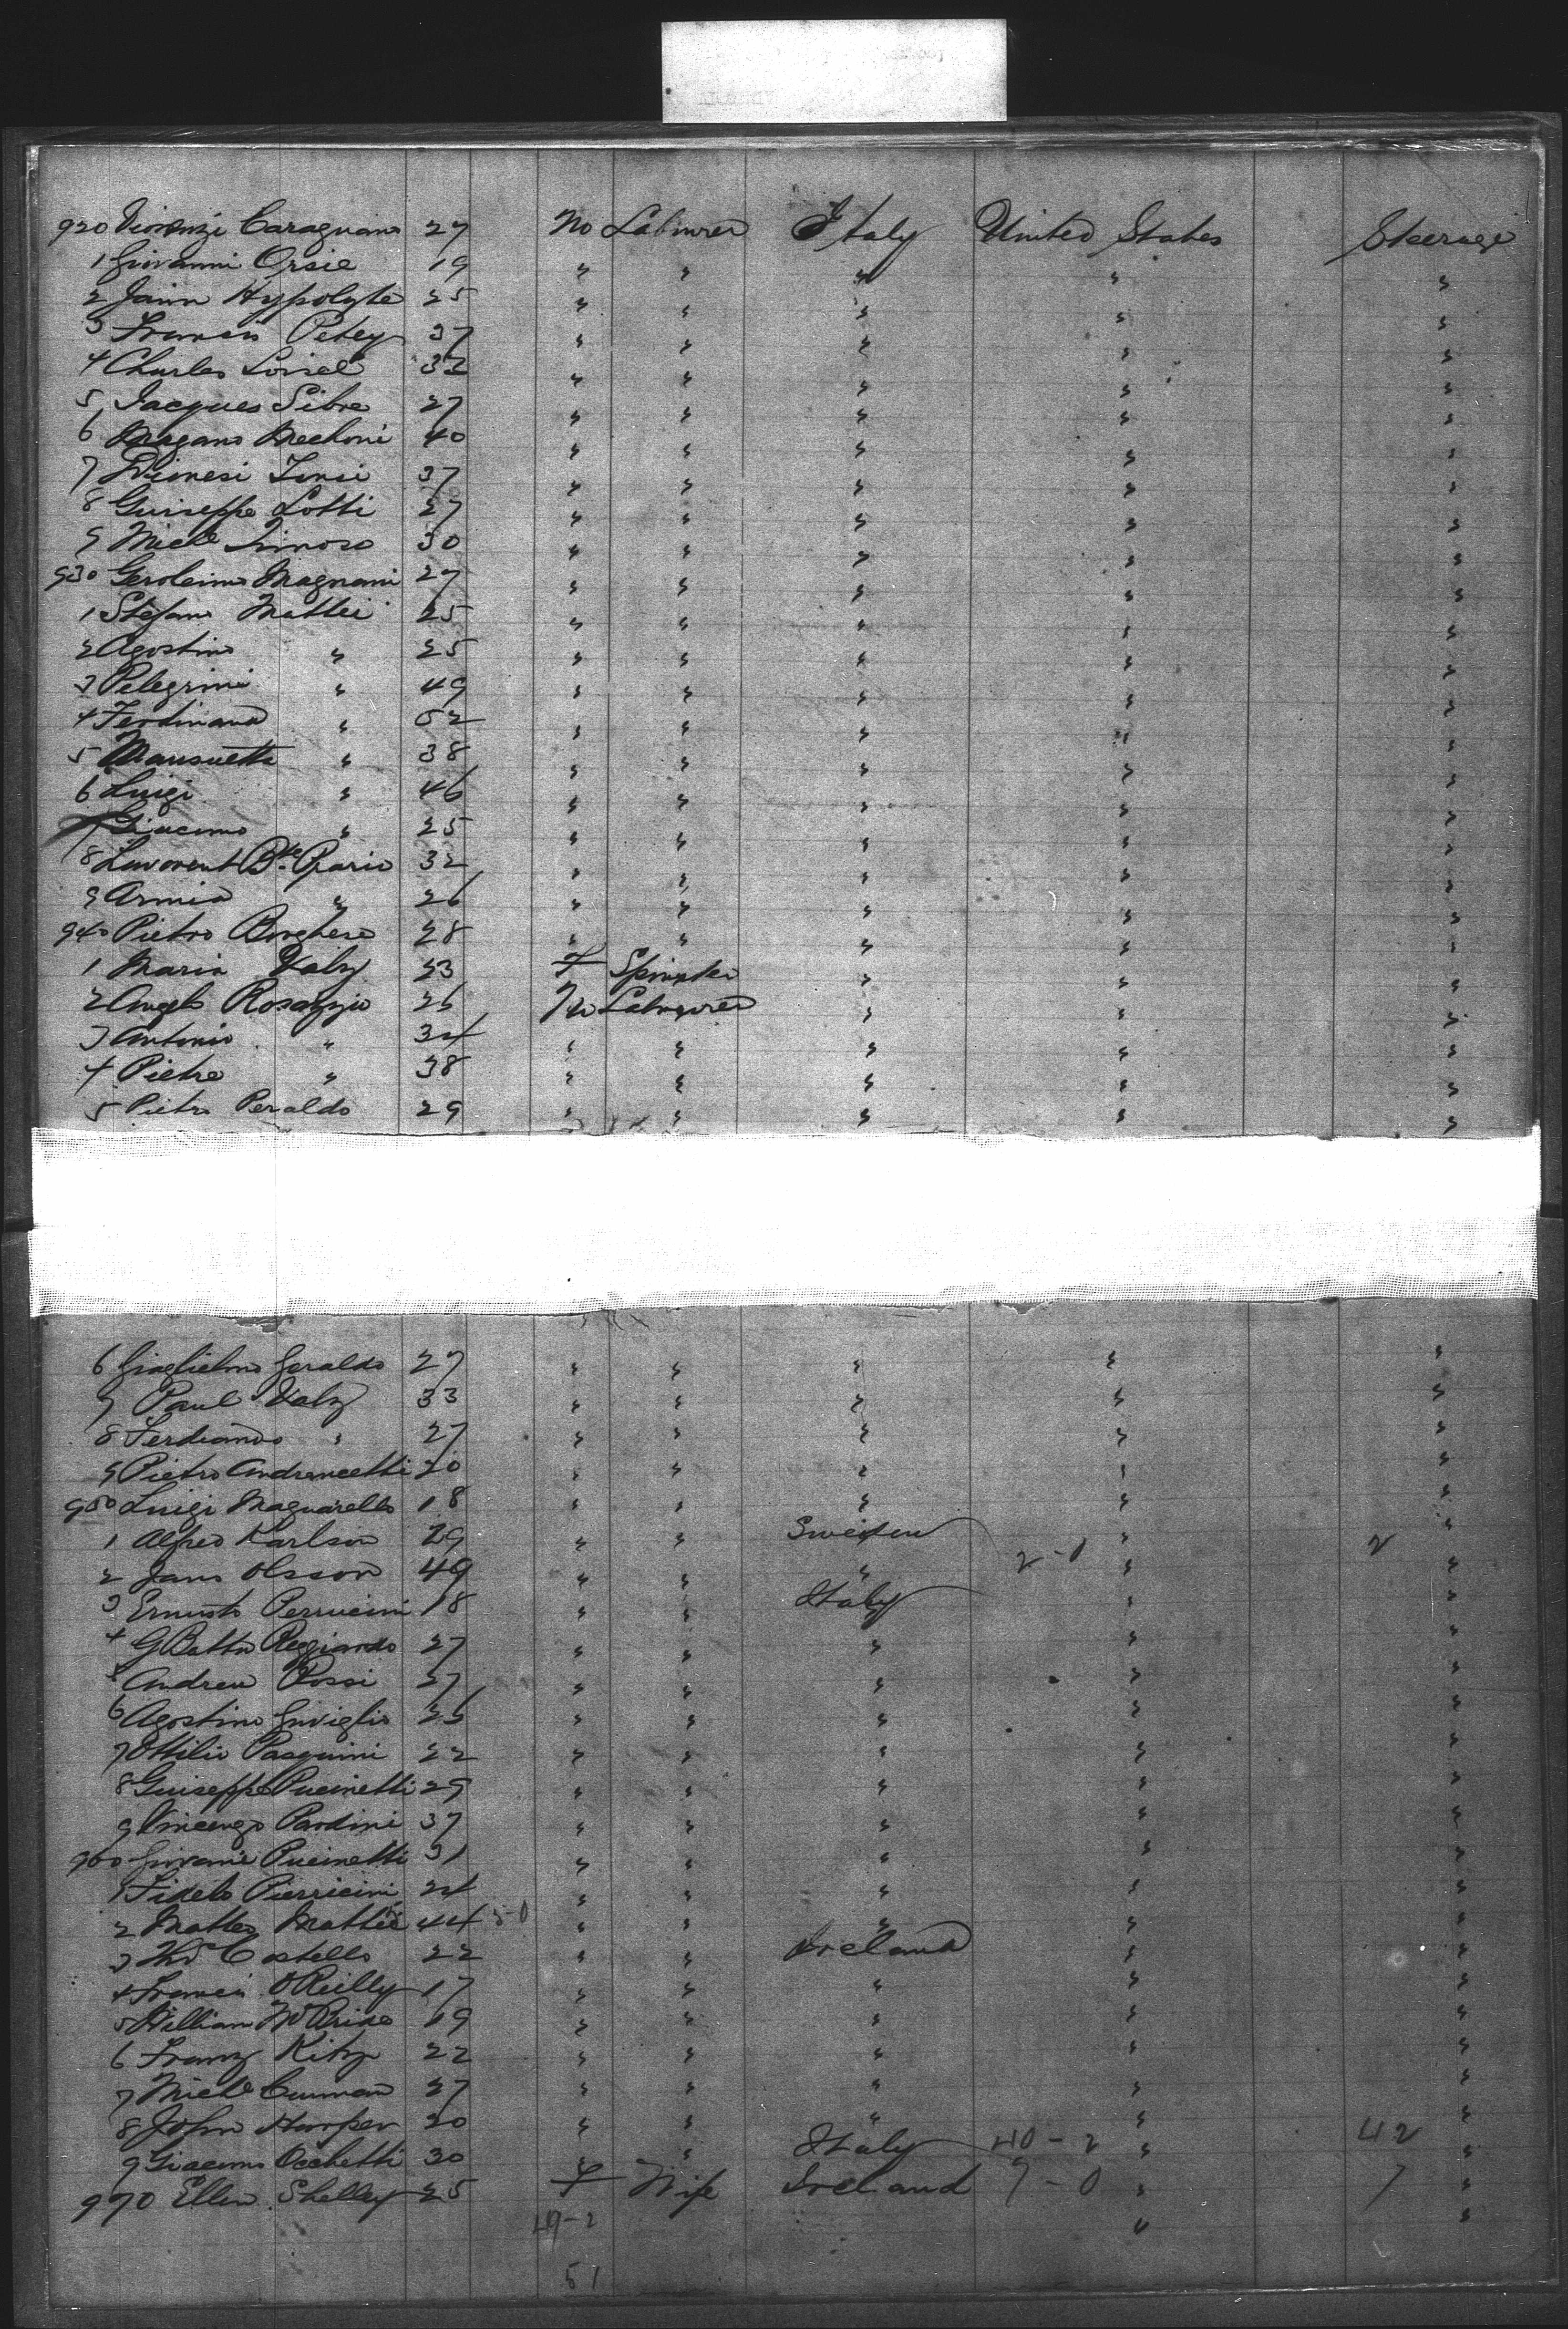 920 Viorenzi Caragnano 27 No Labourer Italy United States Steerage
1 Giovanni Orsie 19 " " " " "
2 Jainn Hypolyte 25 " " " " "
3 Francis Petey 37 " " " " "
4 Charles Loisel 32 " " " " "
5 Jacques Sibre 27 " " " " "
6 Magano Mechoni 40 " " " " "
7 Dionesi Tonsi 37 " " " " "
8 Guiseppe Lotti 27 " " " " "
9 Michl Limoso 30 " " " " "
930 Geroleimo Magnani 27 " " " " "
1 Stefano Mattei 25 " " " " "
2 Agostino " 25 " " " " "
3 Pelegrini " 49 " " " " "
4 Ferdinand " 52 " " " " "
5 Mansuetta " 38 " " " " "
6 Luigi " 46 " " " " "
7 Giacomo " 25 " " " " "
8 Bte Opario 32 " " " " "
9 Armia " 26 " " " " "
940 Pietro Borghese 28 " " " " "
1 Maria Valz 23 F Spinster " " "
2 Angelo Rosazzio 26 No Labourer " " "
3 Antonio " 34 " " " " "
4 Pietre " 38 " " " " "
5 Pietro Peraldo 29 " " " " "
6 Giuglielmo Geraldo 27 " " " " "
7 Paul Valz 33 " " " " "
8 Ferdiando " 27 " " " " "
9 Pietro Andrencetti 20 " " " " "
950 Luigi Magnarello 18 " " " " "
1 Alfred Karlson 29 " " Sweden " "
2 Jans Olsson 49 " " " 2-0 " 2 "
3 Ernusto Perrucini 18 " " Italy " "
4 G Batta Reggiardo 27 " " " " "
5 Andrea Rossi 27 " " " " "
6 Agostino Giviglio 26 " " " " "
7 Ottilio Pasquini 22 " " " " "
8 Guiseppe Pucinetti 29 " " " " "
9 Vincenzo Pardini 37 " " " " "
960 Giovanie Pucinetti 31 " " " " "
1 Fidelo Pierricini 24 " " " " "
2 Matteo Mattei 44 5-0 " " " " "
3 Costello 22 " " Ireland " "
4 Francis O'Reilly 17 " " " " "
5 William McBride 19 " " " " "
6 Franz Kitz 22 " " " " "
7 Michl Cunnan 27 " " " " "
8 John Harper 20 " " " " "
9 Giacomo Ochetti 30 " " Italy 40-2 " 42 "
970 Ellen Shelley 25 F Wife Ireland 7-0 " 7 "
49-2 " "
51